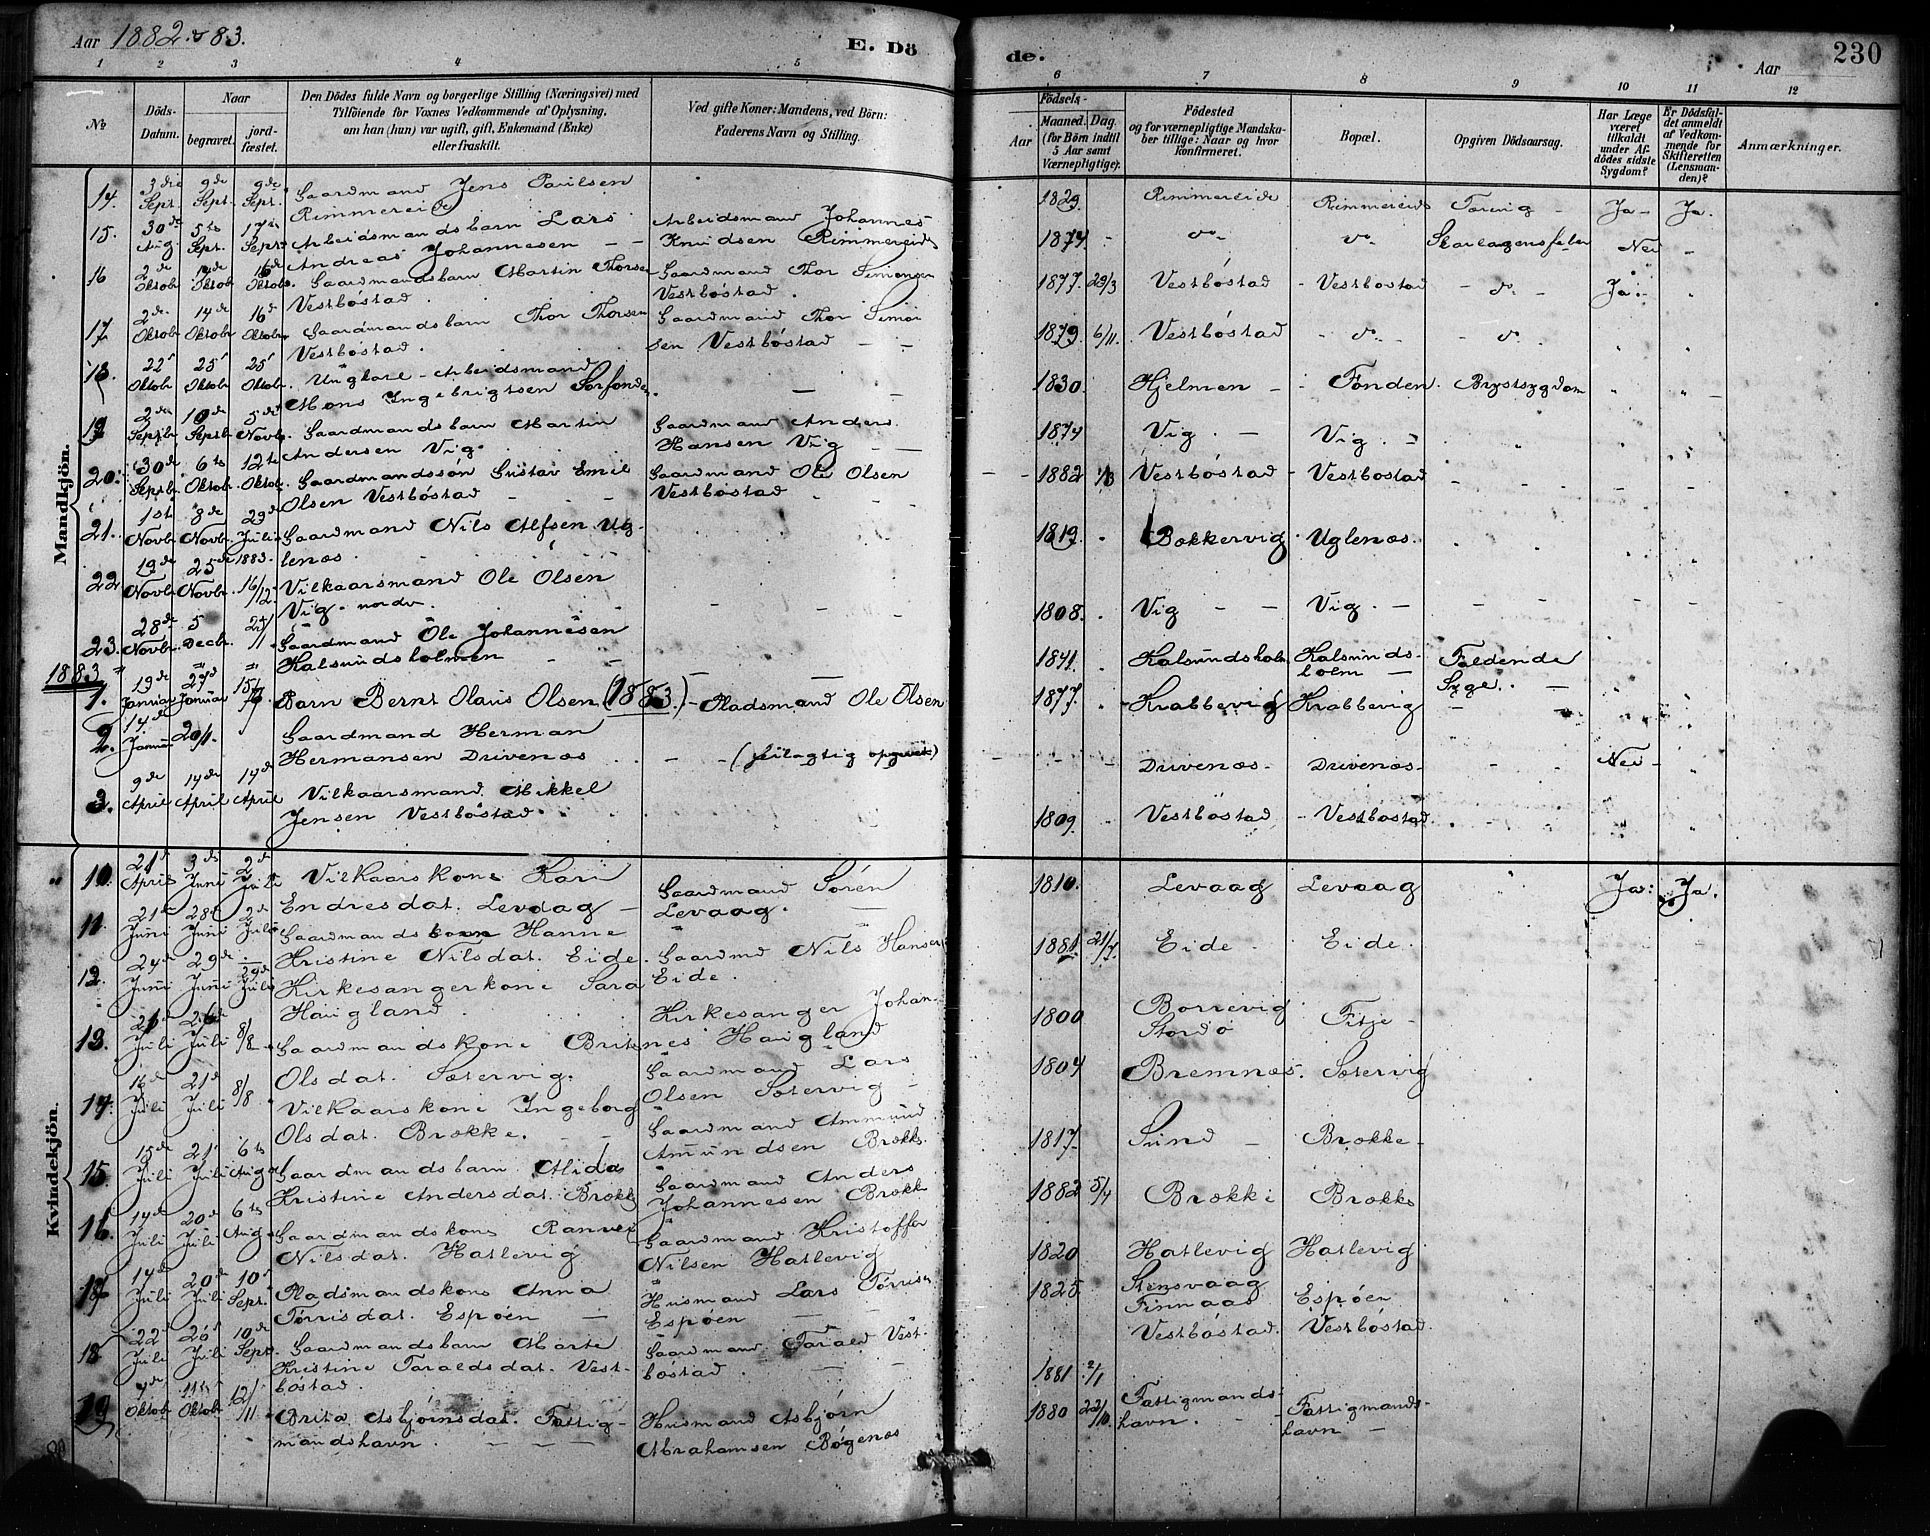 Aar 1882 & 83.
E. Dö
de.
Aar
230
1 2 3 4 5 6 7 8 9 10 11 12
No
Döds-Datum.
Naar
begravet.
jord-fæstet.
Den Dödes fulde Navn og borgerlige Stilling (Næringsvei) med
Tilföiende for Voxnes Vedkommende af Oplysning,
om han (hun) var ugift, gift, Enkemand (Enke)
eller fraskilt.
Ved gifte Koner: Mandens, ved Börn:
Faderens Navn og Stilling.
Födsels-
Aar
Maaned. Dag.
(for Börn indtil
5 Aar samt
Værnepligtige).
Födested
og for værnepligtige Mandska-
ber tillige: Naar og hvor
konfirmeret.
Bopæl.
Opgiven Dödsaarsag.
Har Læge
været
tilkaldt
under Af-
dödes sidste
Sygdom?
Er Dödsfal-
det anmeldt
af Vedkom-
mende for
Skifteretten
(Lensman-
den)?
Anmærkninger.
Mandkjön.
14. 3die Sept. 9de Sept. 9de Sept. Gaardmand Jens Paulsen
Rimmereide 1829 Rimmereide Rimmereide Ja Ja.
15. 30de Aug 5te Sept. 17de Sept. Arbeidsmandsbarn Lars
Andreas Johannesen Arbeidsmand Johannes
Knudsen Rimmereide 1874 do do Skarlagensfeber Nei
16 2de Oktobr 14de Oktobr 16de Oktobr. Gaardmandsbarn Martin Thorsen
Vestbøstad. Gaardmand Thor Simonsen
Vestbøstad. 1877. 29/3 Vestbøstad Vestbøstad do Ja
17. 2de Oktobr 14de Oktobr 16de Oktobr. Gaardmandsbarn Thor Thorsen
Vestbøstad. Gaardmand Thor Simon
sen Vestbøstad 1879. 6/11. Vestbøstad do do
18. 22 Oktobr 25 Oktobr 25 Oktobr. Ungkarl Arbeidsmand
Mons Ingebrigtsen Sørfonden. 1830. Hjelmen Fonden. Brystsygdom
19. 2den Septbr. 10de Septbr. 5te Novbr. Gaardmandsbarn Martin
Andersen Vig. Gaardmand Anders
Hansen Vig 1874 Vig. Vig.
20. 30de Septbr. 6te Oktobr. 12te Oktobr. Gaardmandssøn Gustav Emil
Olsen Vestbøstad Gaardmand Ole Olsen
Vestbøstad 1882 Vestbøstad Vestbøstad
21. 1ste Novbr. 8de Novbr. 29de Juli 1883. Gaardmand Nils Alfsen Ug-
lenæs. 1819. Bækkervig Uglenæs.
22 19de Novbr. 25de Novbr. 16/12. Vilkaarsmand Ole Olsen
Vig nordr. 1808. Vig Vig.
23. 28de Novbr. 5 Decbr. Gaardmand Ole Johannesen
Kalsundsholmen 1841. Kalsundsholm Kalsunds-
holm Faldende
Syge.
1883
1. 19de Januar 27d Januar Barn Bernt Olaus Olsen (1883.) Pladsmand Ole Olsen 1877. Krabbevig Krabbevig
2. 14de Januar 20/1. Gaardmand Herman
Hermansen Drivenæs (feilagtig opgivet) Drivenæs. Drivenæs. Nei
3. 9de April 14de April 14de April Vilkaarsmand Mikkel
Jensen Vestbøstad. 1809. Vestbøstad Vestbøstad.
Kvindekjön.
10. 21d April 3de Juni 2d Juli Vilkaarskone Kari
Endresdat. Levaag Gaardmand Søren
Levaag. 1810. Levaag Levaag Ja. Ja.
11 21de Juni 28de Juni 2d Juli Gaardmandsbarn Hanne
Kristine Nilsdat. Eide. Gaardmd Nils Hansen
Eide. 1881. 21/7. Eide Eide
12. 24de Juni 29de Juni 29de Juli Kirkesangerkone Sara
Haugland. Kirkesanger Johan-
nes Haugland 1800 Borrevig
Stordø Fitje
13. Juli 26de Juli 8/8 Gaardmandskone Brite
Olsdat. Sætervig. Gaardmand Lars
Olsen Sætervig 1804 Bremnæs. Sætervig
14. 16de Juli 21de Juli 8/8 Vilkaarskone Ingeborg
Olsdat. Brække. Gaardmand Ammund
Amundsen Brække. 1817. Sund Brække
15. 15de Juli 21 Juli 6te Aug Gaardmandsbarn Alida
Kristine Andersdat. Brække Gaardmand Anders
Johannesen Brække 1882 5/4 Brække Brække
16. 14de Juli 20de Juli 6te Aug Gaardmandskone Ranveig
Nilsdat. Hatlevig Gaardmand Kristoffer
Nilsen Hatlevig 1820 Hatlevig Hatlevig
17. 14de Juli 20de Juli 10d Sept. Pladsmandskone Anna
Tørrisdat. Espøen Husmand Lars Tørrisen
Espøen 1825 Stensvaag
Finnaas Espøen
18 22d Juli 26d Juli 10de Sept. Gaardmandsbarn Marte
Kristine Taraldsdat. Vest-
bøstad. Gaardmand Tarald Vest-
bøstad. 1881 2/1 Vestbøstad. Vestbøstad.
19 4de Oktobr 11te Oktobr 12/11 Brita Asbjørnsdat. Fattig-
mandshavn. Husmand Asbjørn
Abrahamsen Bøgenæs 1880 22/10. Fattigmands-
havn. Fattigmands-
havn